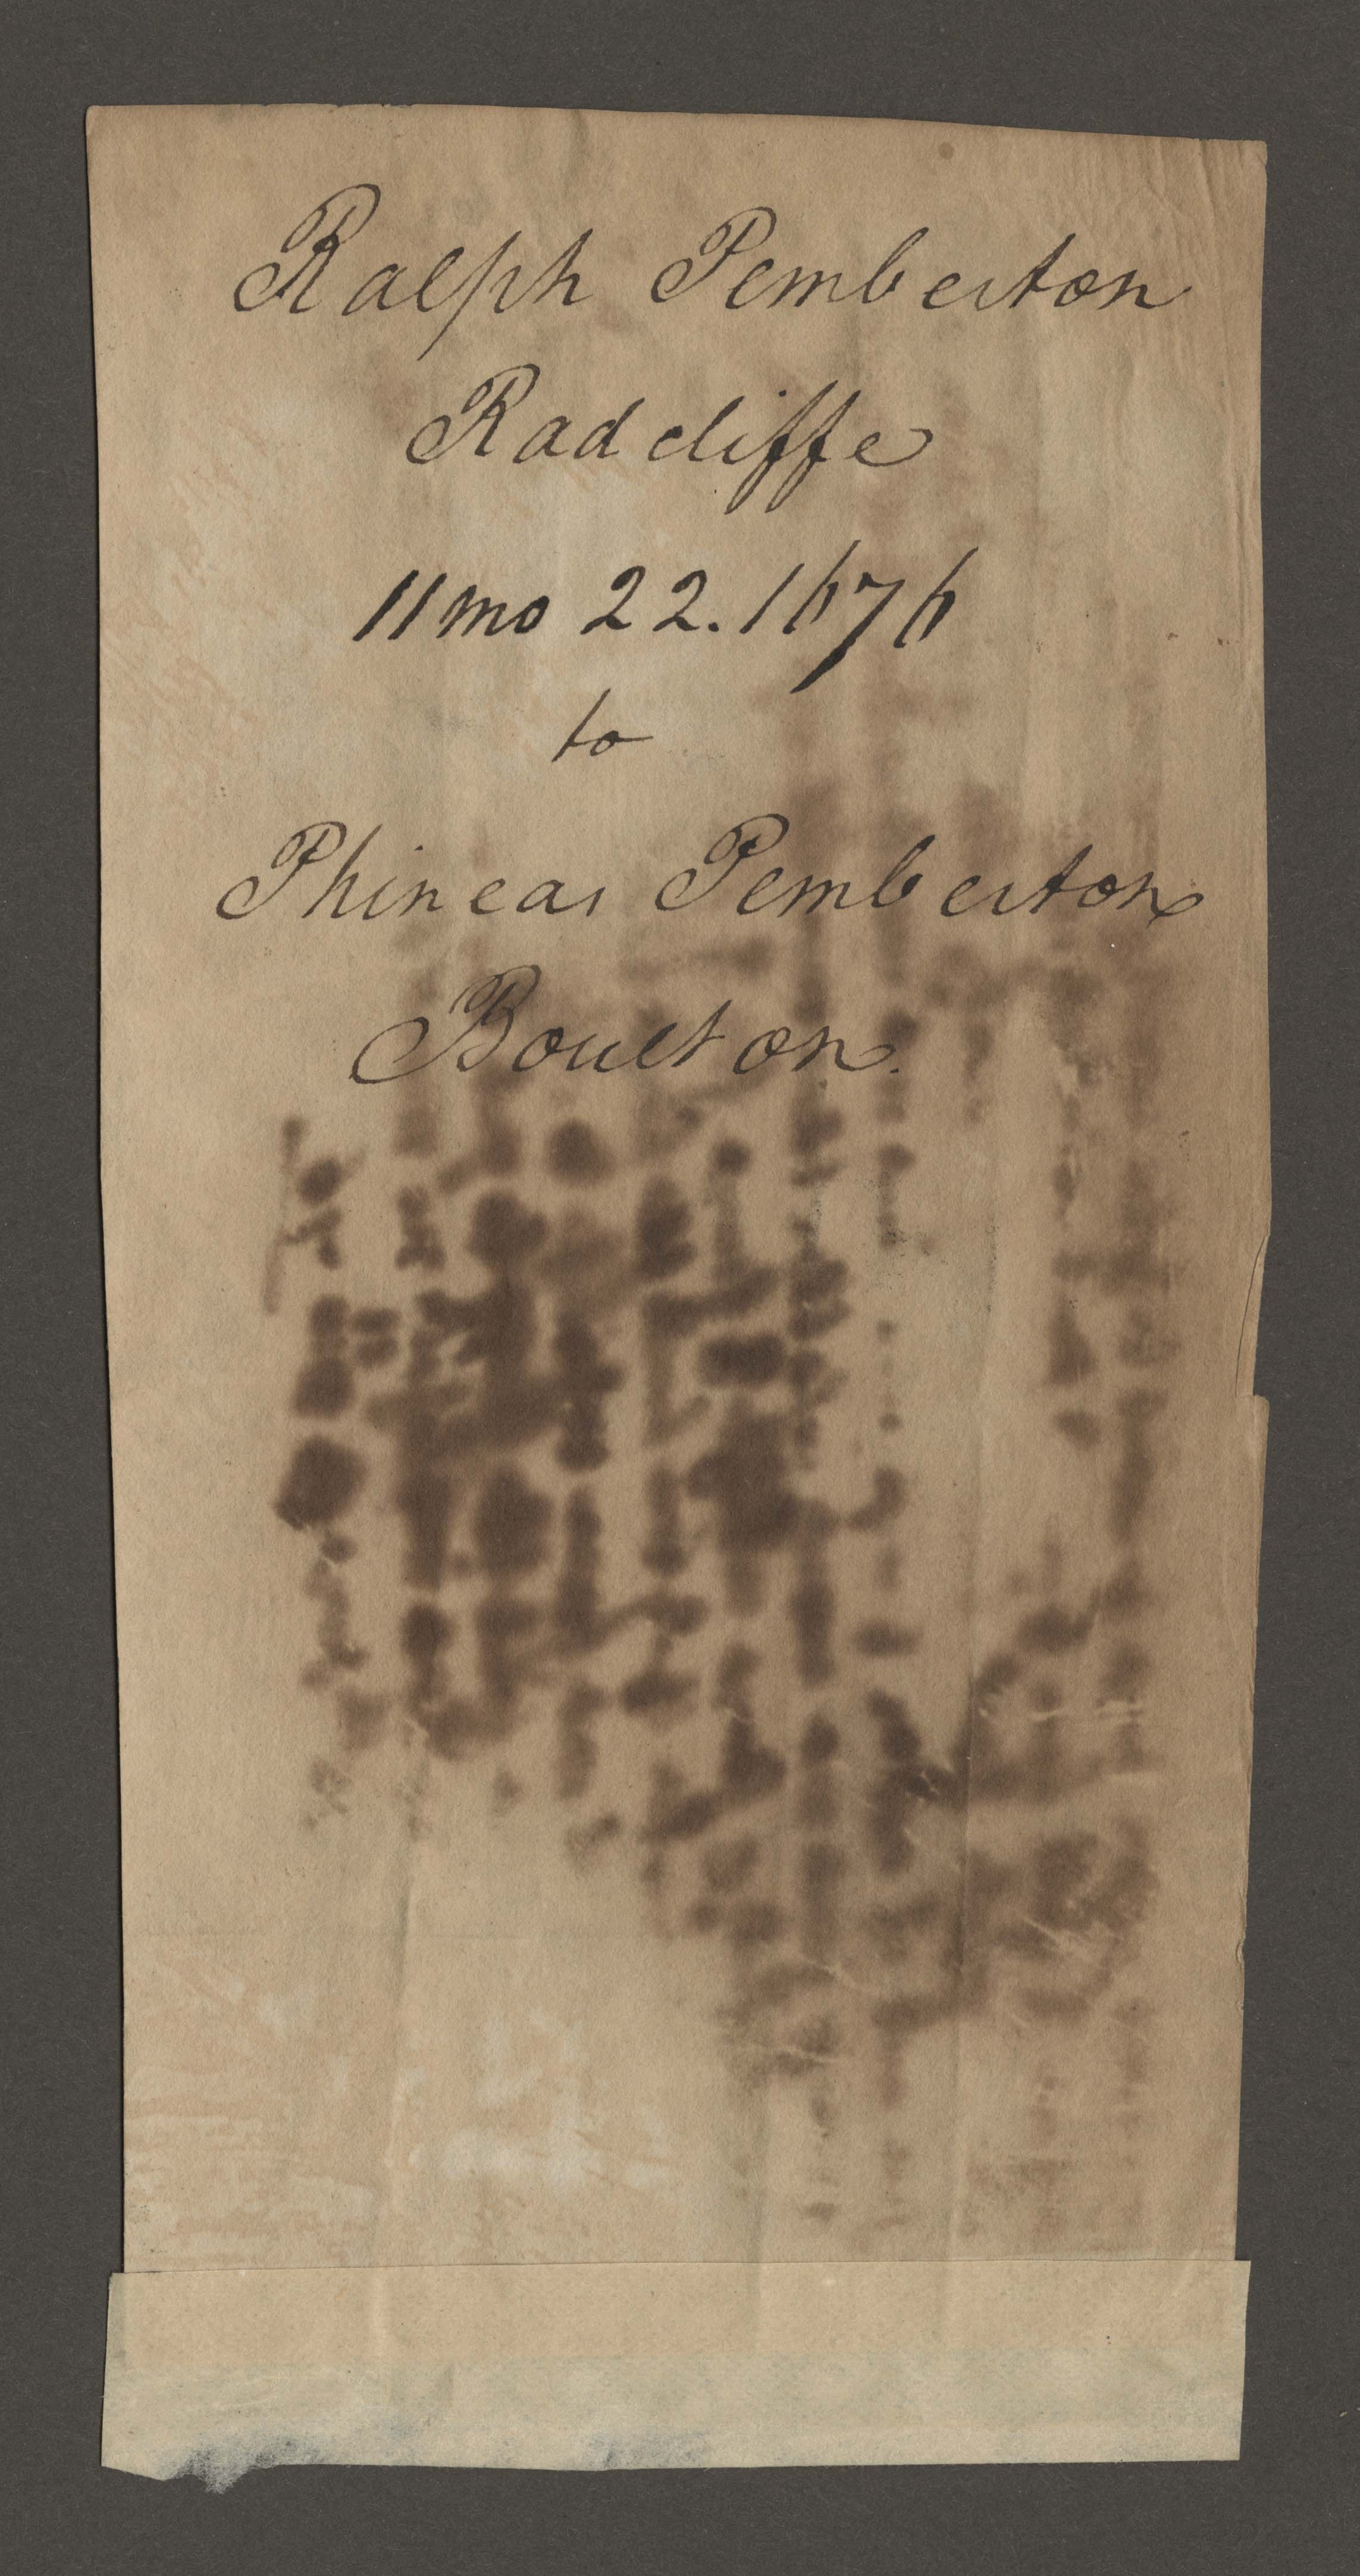 Ralph Pemberton
Radcliffe
11 mo 22. 1676
to
Phineas Pemberton
Boulton.